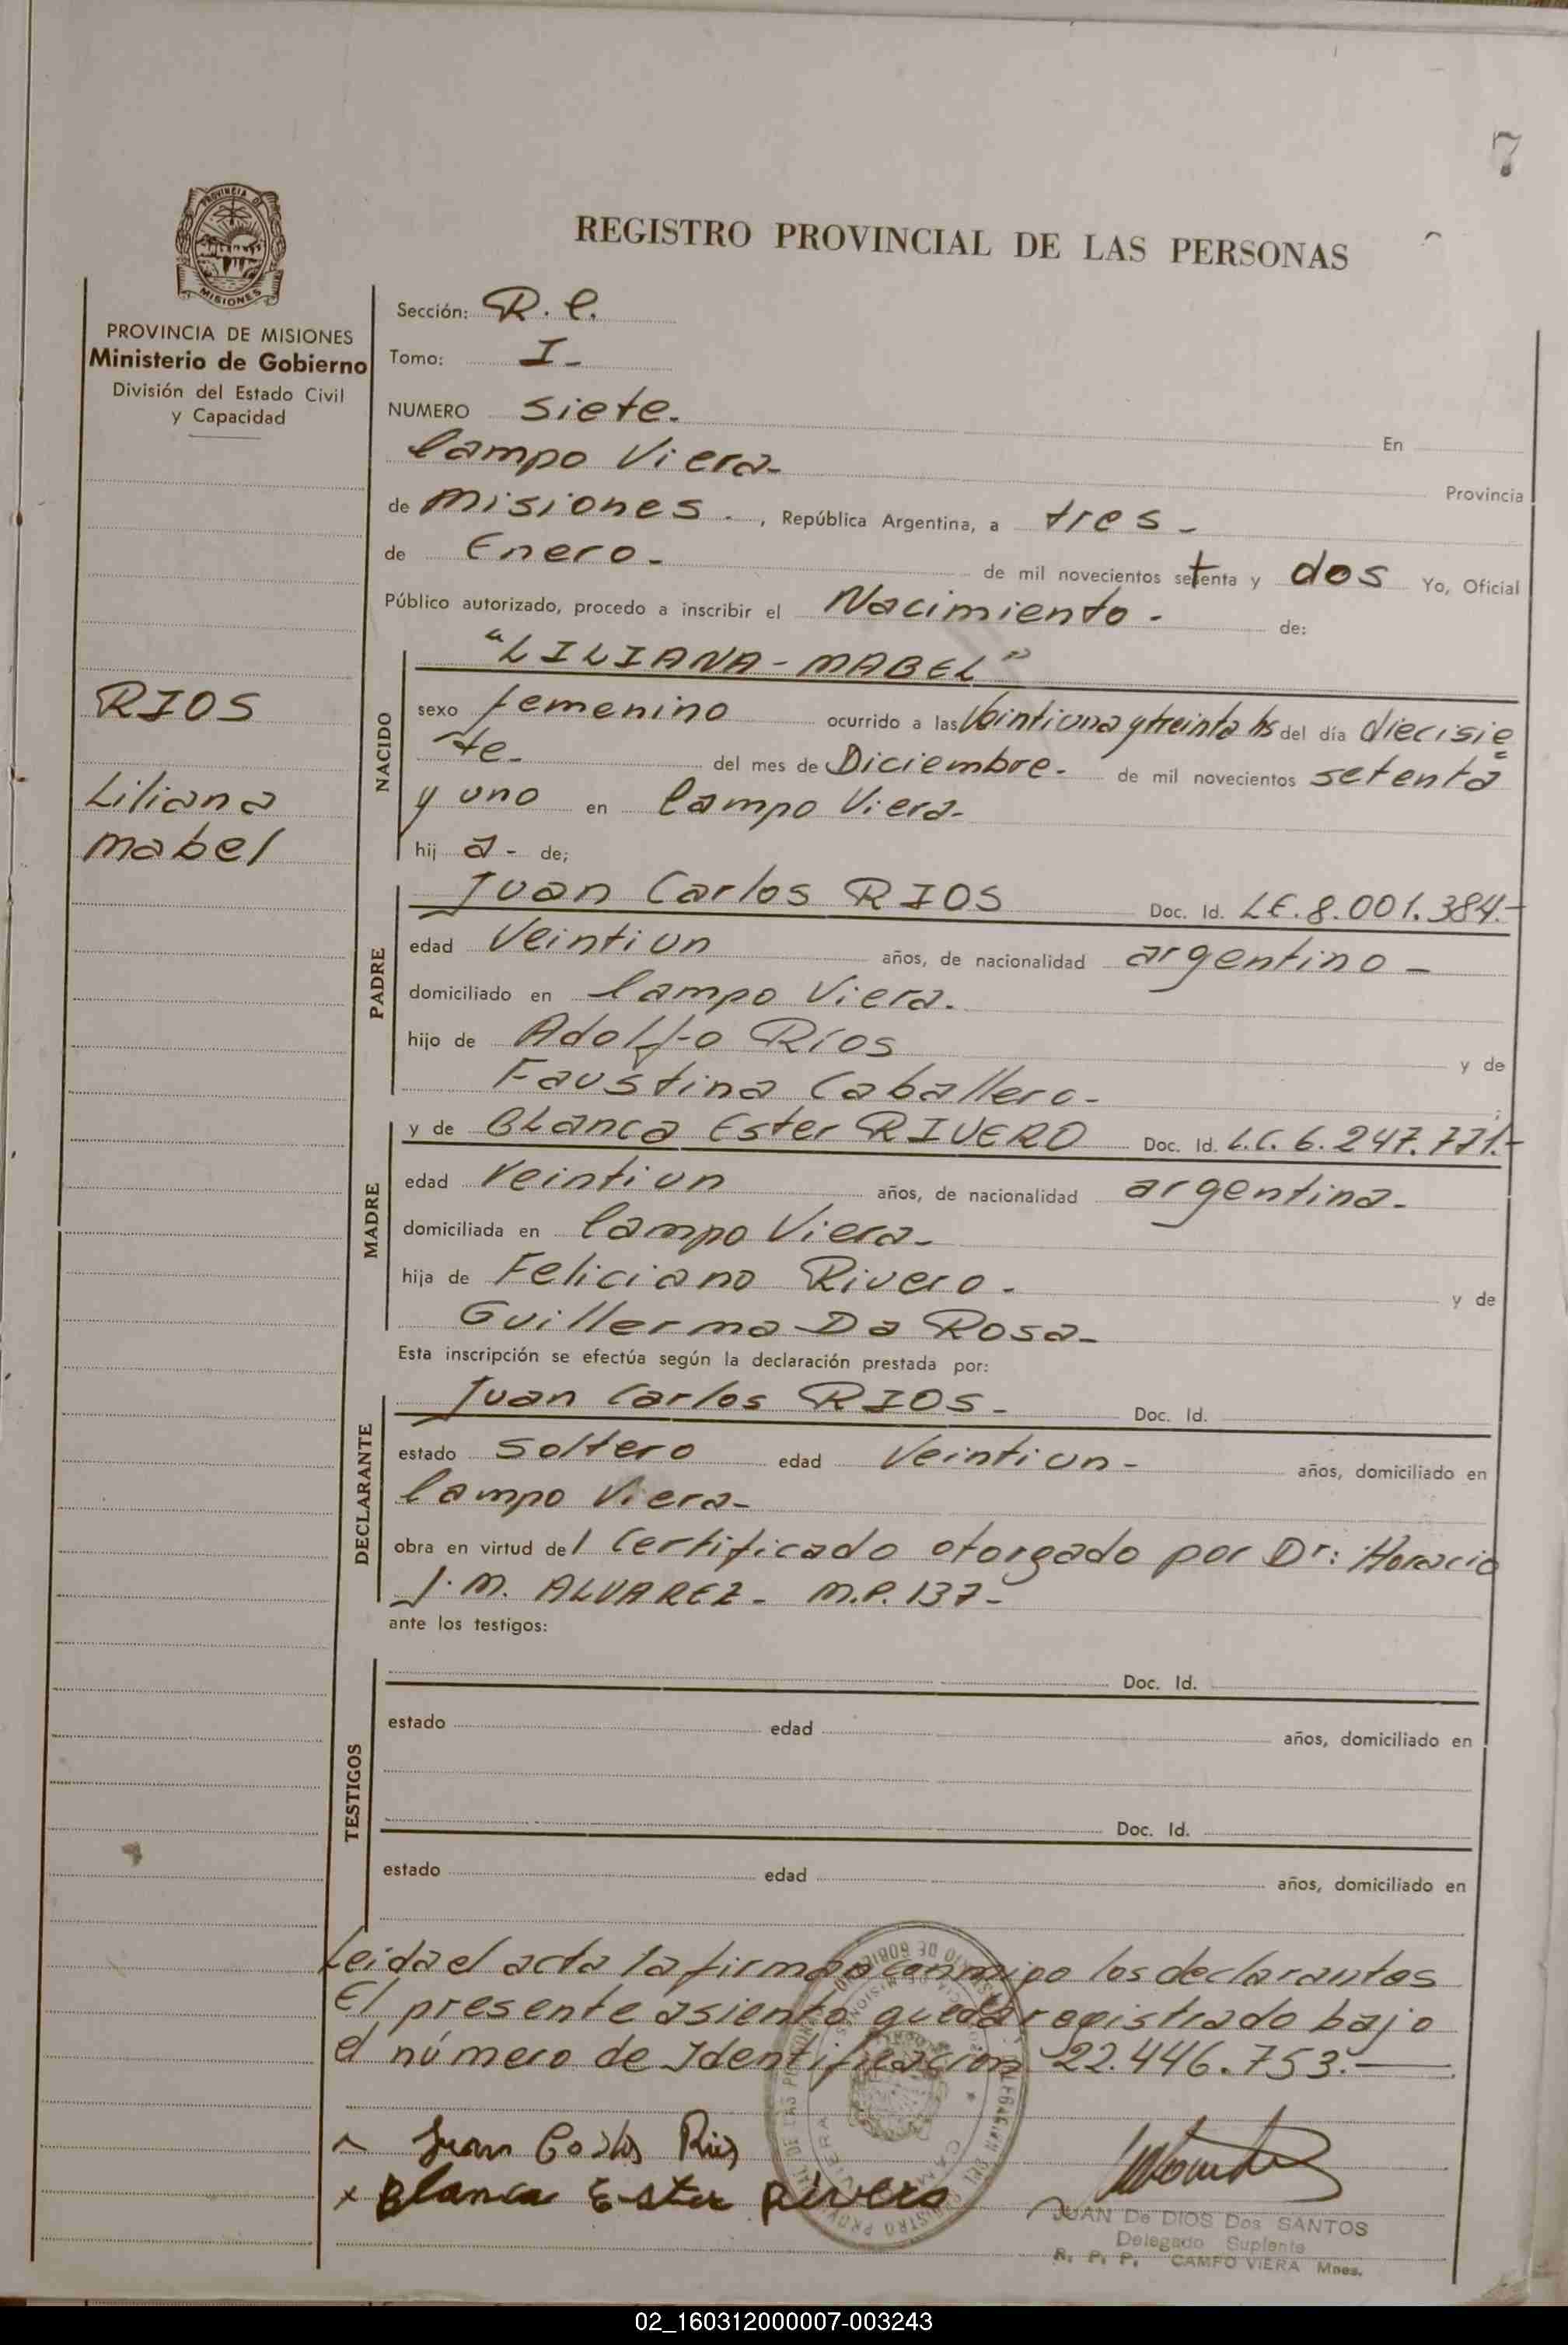 7
REGISTRO PROVINCIAL DE LAS PERSONAS
PROVINCIA DE
MISIONES
PROVINCIA DE MISIONES
Ministerio de Gobierno
División del Estado Civil
y Capacidad
RIOS
Liliana
Mabel
Sección: R. C.
Tomo: I-
NUMERO siete. En
Campo Viera- Provincia
de Misiones. , República Argentina, a tres-
de Enero- de mil novecientos setenta y dos Yo, Oficial
Público autorizado, procedo a inscribir el Nacimiento- de:
NACIDO
"LILIANA-MABEL"
sexo femenino ocurrido a las Veintiuna y treinta hs del día diecisie
te- del mes de Diciembre- de mil novecientos setenta
y uno en Campo Viera-
hij a- de;
PADRE
Juan Carlos RIOS Doc. Id. LE. 8.001.384.-
edad Veintiun años, de nacionalidad argentino-
domiciliado en Campo Viera.
hijo de Adolfo Ríos y de
Faustina Caballero- ;
MADRE
y de BLanca Ester RIVERO Doc. Id. L.C. 6.247.771.-
edad Veintiun años, de nacionalidad argentina-
domiciliada en Campo Viera-
hija de Feliciano Rivero- y de
Guillerma Da Rosa-
Esta inscripción se efectúa según la declaración prestada por:
DECLARANTE
Juan Carlos RIOS- Doc. Id.
estado Soltero edad Veintiun- años, domiciliado en
Campo Viera-
obra en virtud del Certificado otorgado por Dr: Horacio
J. M. ALVAREZ- M.P. 137-
ante los testigos:
TESTIGOS
Doc. Id.
estado edad años, domiciliado en
Doc. Id.
estado edad años, domiciliado en
Leida el acta la firman conmigo los declarantes
El presente asiento queda registrado bajo
el número de Identificacion 22.446.753.-
Juan Carlos Rios
x Blanca Ester Rivero
JUAN De DIOS Dos SANTOS
Delegado Suplente
R. P. P. CAMPO VIERA Mnes.
02_160312000007-003243